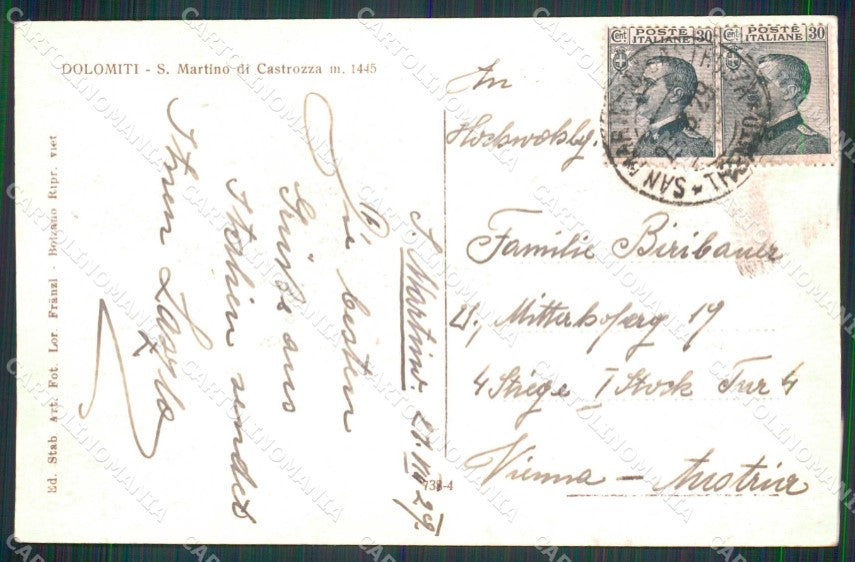 DOLOMITI - S. Martino di Castrozza m. 1445
Ed. Stab. Art. Fot. Lor. Fränzl - Bolzano Ripr. viet
S. Martino
Die besten
Grüsse aus
Italien sendet
738-4
In
Familie Biribauer
21., Mitterhoferg 19
4 Stiege I Stock Tür 4
Vienna - Austria
POSTE ITALIANE
Ct 30
POSTE ITALIANE
Ct 30
SAN MARTINO
CARTOLINOMANIA